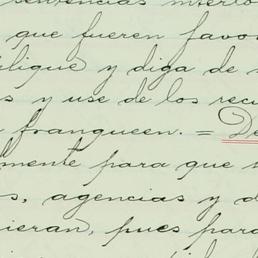 sentencias interlo
que fueren favo
plique y diga de
s y use de los recu
franqueen. = De
mente para que s
s, agencias y d
ieran, pues para